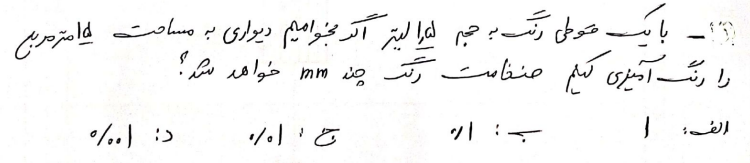 - با یک قوطی رنگ به حجم ۱٫۵ لیتر اگر بخواهیم دیواری به مساحت ۱۵ مترمربع
را رنگ آمیزی کنیم ضخامت رنگ چند mm خواهد شد؟
الف: ۱ ب: ۰٫۱ ج: ۰٫۰۱ د: ۰٫۰۰۱